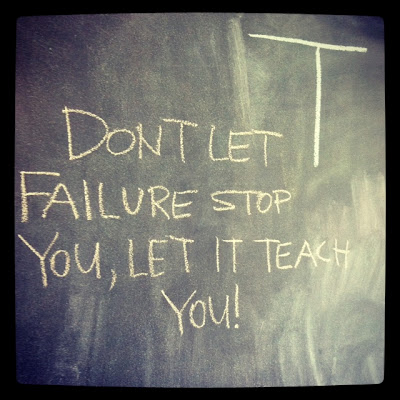 T
DONT LET
FAILURE STOP
YOU, LET IT TEACH
YOU!